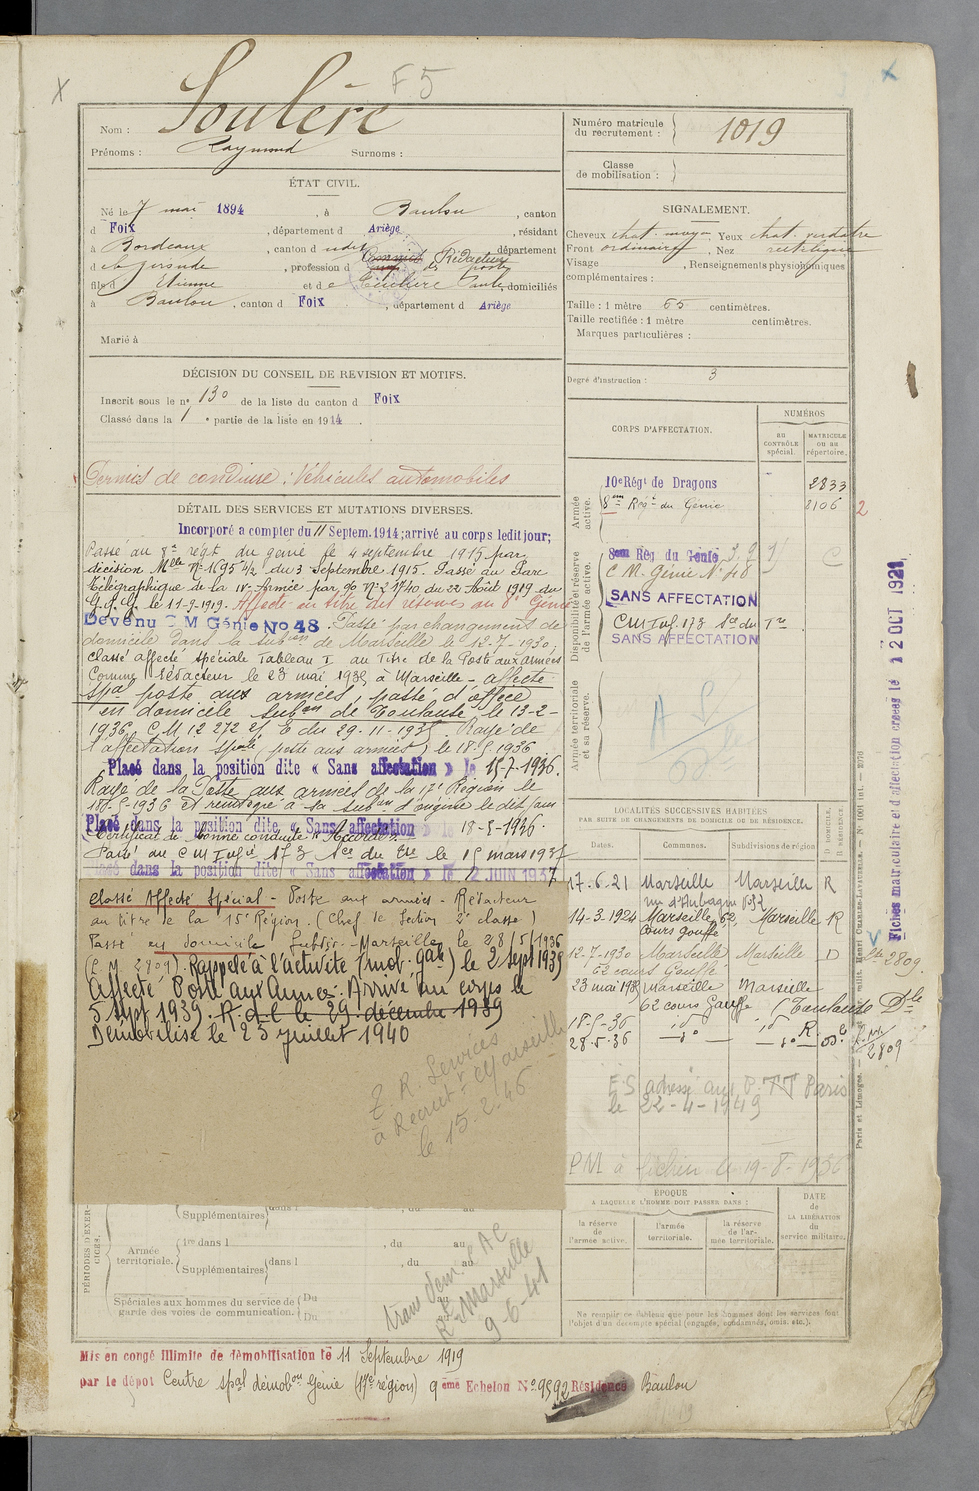 F 5
Nom : Soulère
Prénoms : Raymond Surnoms :
Numéro matricule du recrutement : 1019
Classe de mobilisation :
ÉTAT CIVIL.
Né le 7 mai 1894, à Baulou, canton
d Foix, département d Ariège, résidant
à Bordeaux, canton d udit, département
d e la Gironde, profession d Rédacteur des postes
fils d Etienne et d e domiciliés
à Baulou, canton d Foix, département d Ariège
Marié à
SIGNALEMENT.
Cheveux chat. moyen, Yeux chat. verdatre
Front ordinaire, Nez rectiligne
Visage , Renseignements physionomiques
complémentaires :
Taille : 1 mètre 65 centimètres.
Taille rectifiée : 1 mètre centimètres.
Marques particulières :
Degré d'instruction : 3
DÉCISION DU CONSEIL DE REVISION ET MOTIFS.
Inscrit sous le n° 130 de la liste du canton d Foix
Classé dans la 1 e partie de la liste en 1914
Permis de conduire : Véhicules automobiles
DÉTAIL DES SERVICES ET MUTATIONS DIVERSES.
Incorporé a compter du 11 Septem. 1914; arrivé au corps ledit jour;
Passé au 8e régt du génie le 4 septembre 1915 par
décision Mlle No 1695 4/2 du 3 Septembre 1915. Passé au Parc
Télégraphique de la IVe Armée par 9/0 No 21740 du 22 Août 1919 du
G.Q.G. le 11-9-1919. Affecté en titre des réserves au 8e Génie
Devenu C M Génie No 48. Passé par changement de
domicile dans la subon de Marseille le 12-7-1930,
Classé affecté spéciale Tableau I au Titre de la Poste aux armées
Comme rédacteur le 23 mai 1935 à Marseille - affecté
spal poste aux armées, passé d'office
en domicile subon de Toulouse le 13-2-
1936 C M 12 272 2/1 E du 29-11-1935. Rayé de
l'affectation spale poste aux armées le 18-5-1936
Placé dans la position dite « Sans affectation » le 15-7-1936.
Rayé de la Poste aux armées de la 17e Région le
18-5-1936 et réintégré à sa subon d'origine le dit jour
Placé dans la position dite « Sans affectation » le 18-5-1936.
Certificat de bonne conduite "Accordé"
Passé au CM Infie 173 Son du Tre le 15 mars 1937
dans la position dite « Sans affectation » le 2 JUIN 1937
Classé Affecté Spécial - Poste aux armées - Rédacteur
au titre de la 15e Région. (Chef de Section 2e classe)
Passé en domicile Subdiv. Marseille le 28/5/1936
(C.M. 2809). Rappelé à l'activité (mob. gale) le 2 sept 1939
Affecté Poste aux Armées. Arrivé au corps le
5 sept 1939. R. d. l. le 29 décembre 1939
Démobilisé le 23 juillet 1940
E. R. Services
à Recrutt Marseille
le 15.2.46
CORPS D'AFFECTATION.
NUMÉROS
AU CONTRÔLE spécial.
MATRICULE ou au répertoire.
Armée active.
10e Régt de Dragons 2833
8eme Régt du Génie 8106 2
Disponibilité et réserve de l'armée active.
8eme Rég du Génie
C M. Génie No 48
SANS AFFECTATION
CM Inf. 173 Son du Tre
SANS AFFECTATION
Armée territoriale et sa réserve.
A S
LOCALITÉS SUCCESSIVES HABITÉES
PAR SUITE DE CHANGEMENTS DE DOMICILE OU DE RÉSIDENCE.
Dates. Communes. Subdivisions de région. D. DOMICILE. R. RÉSIDENCE.
17-6-21 Marseille Marseille R
rue d'Aubagne
14-3-1924 Marseille, 62, Marseille R
Cours Gouffé
12-7-1930 Marseille Marseille D
62 cours Gouffé
23 mai 1935 Marseille Marseille
62 cours Gouffé (Toulouse Dle
18-5-36
28-5-36
2809
2809
F S adressé aux P.T.T Paris
le 22-4-1949
PM à le 19-8-1936
ÉPOQUE
A LAQUELLE L'HOMME DOIT PASSER DANS :
la réserve de l'armée active.
l'armée territoriale.
la réserve de l'armée territoriale.
DATE de LA LIBÉRATION du service militaire.
Ne remplir ce tableau que pour les hommes dont les services font
l'objet d'un décompte spécial (engagés, condamnés, omis, etc.).
PÉRIODES D'EXERCICES.
Supplémentaires dans l , du au
Armée territoriale.
1re dans l , du au
Supplémentaires dans l , du au
Spéciales aux hommes du service de garde des voies de communication. Du au
Du
Marseille
9-6-41
Mis en congé illimité de démobilisation le 11 Septembre 1919
par le dépôt Centre spal démobon Génie (17e région) 9eme Echelon No 9592 Résidence Baulou
Fiches matriculaire et d'affectation créées le 12 OCT 1921
Paris et Limoges. — Impr. milit. Henri CHARLES-LAVAUZELLE. — No 1001 int.